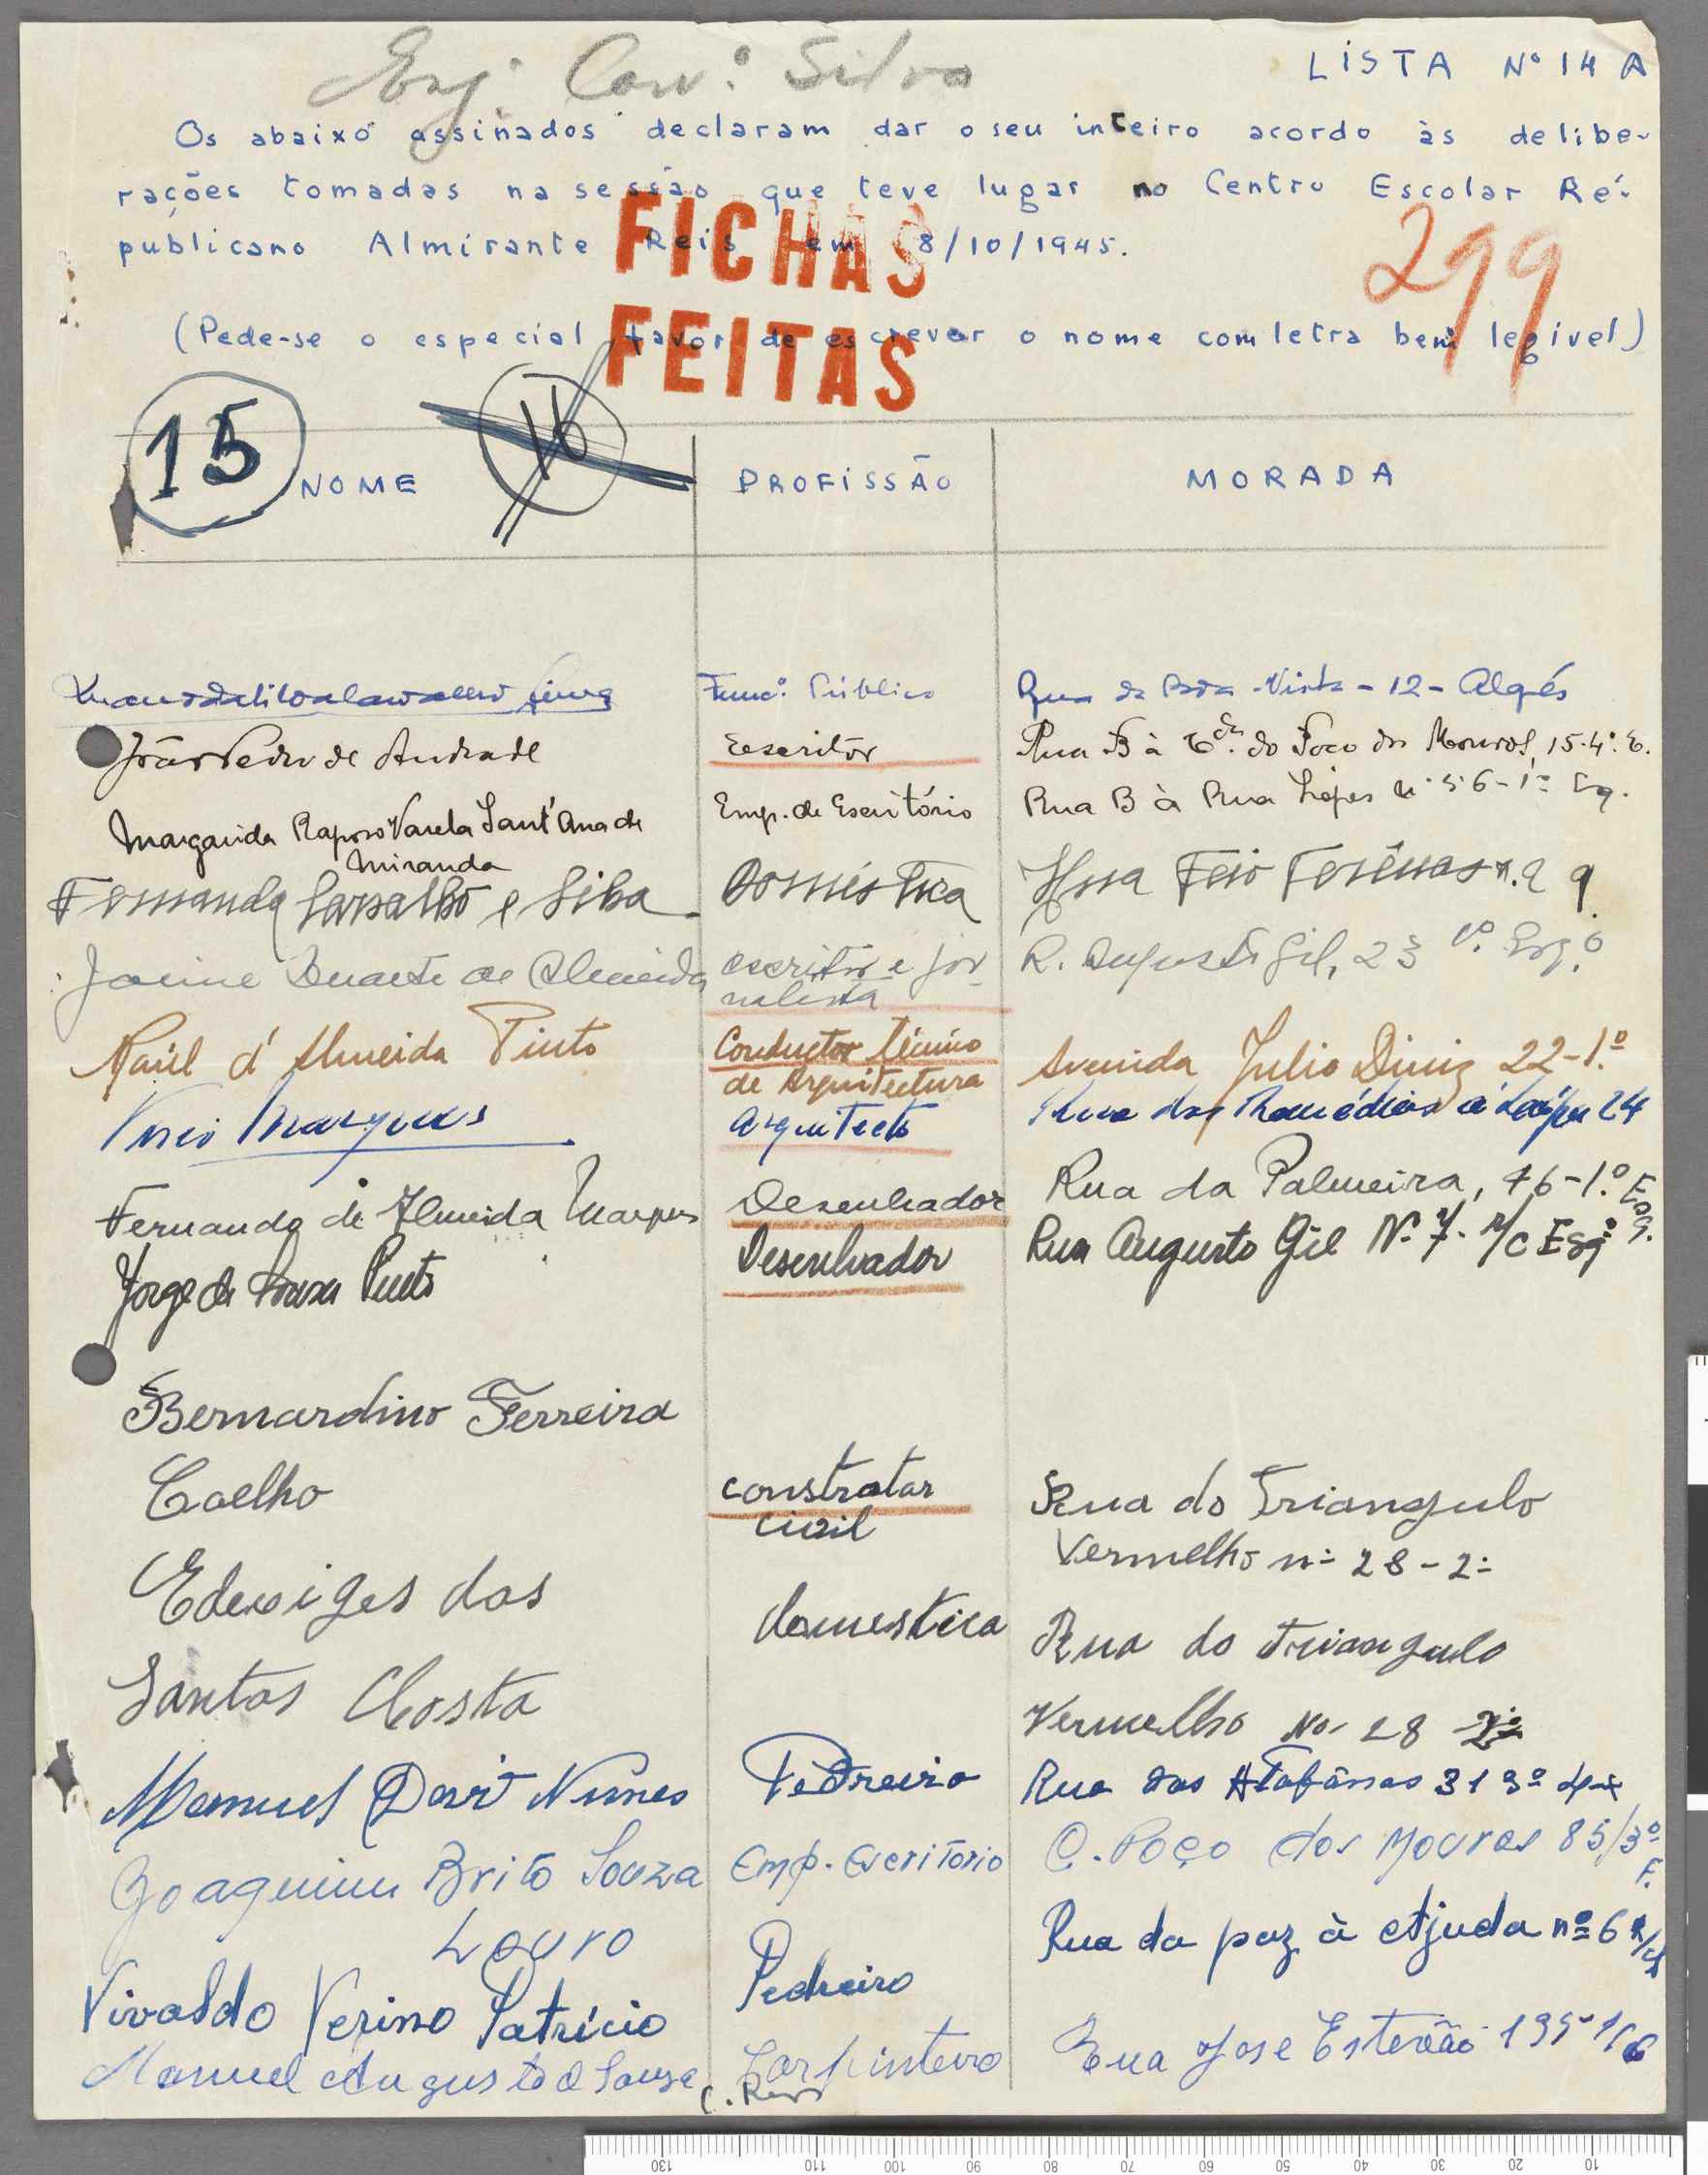 Eng. Cow.º Silva
LISTA Nº 14 A
Os abaixo assinados declaram dar o seu inteiro acordo às delibe-
rações tomadas na sessão que teve lugar no Centro Escolar Re-
publicano Almirante Reis em 8/10/1945.
FICHAS
FEITAS
299
(Pede-se o especial favor de escrever o nome com letra bem legivel)
15
16
NOME PROFISSÃO MORADA
Func.º Público Rua da Boa-Vista - 12 - Algés
João Pedro de Andrade Escritor Rua B à do Poço dos Mouros, 15-4º. E.
Margarida Raposo Varela Sant'Ana de Emp. de Escritório Rua B à Rua Lopes 1º Eq.
Miranda
Fernanda Carvalho e Silva Doméstica Feio Terênas n. 9
Jaime Duarte de Almeida escritor e jor- R. Augusto Gil, 23 1º. Esq.º
nalista
Raúl d'Almeida Pinto Conductor técnico Avenida Julio Diniz 22-1.º
de Arquitectura
Marques arquitecto Rua dos Remédios à Lapa 24
Fernando de Almeida Marques Desenhador Rua da Palmeira, 46-1.º Esq.
Jorge de Sousa Pinto Desenhador Rua Augusto Gil Nº 7. r/c Esqº
Bernardino Ferreira
Coelho constrotor Rua do Triangulo
civil Vermelho nº 28-2º
Edewiges dos domestica Rua do Triangulo
Santos Costa Vermelho No 28 2º
Manuel Nunes Pedreiro Rua das Atafonas 31 3º
Joaquim Brito Souza Emp. escritorio C. Poço dos Mouros 85/3º
F.
Louro
Vivaldo Verino Patrício Pedreiro Rua da paz à Ajuda nº 6 R/c
Manuel Augusto d Souza Carpinteiro Rua Jose Estevão